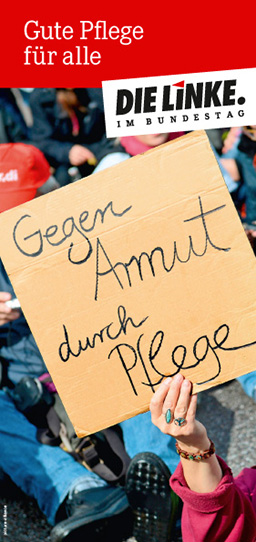 Gute Pflege
für alle
DIE LINKE.
IM BUNDESTAG
di
Gegen
Armut
durch
Pflege